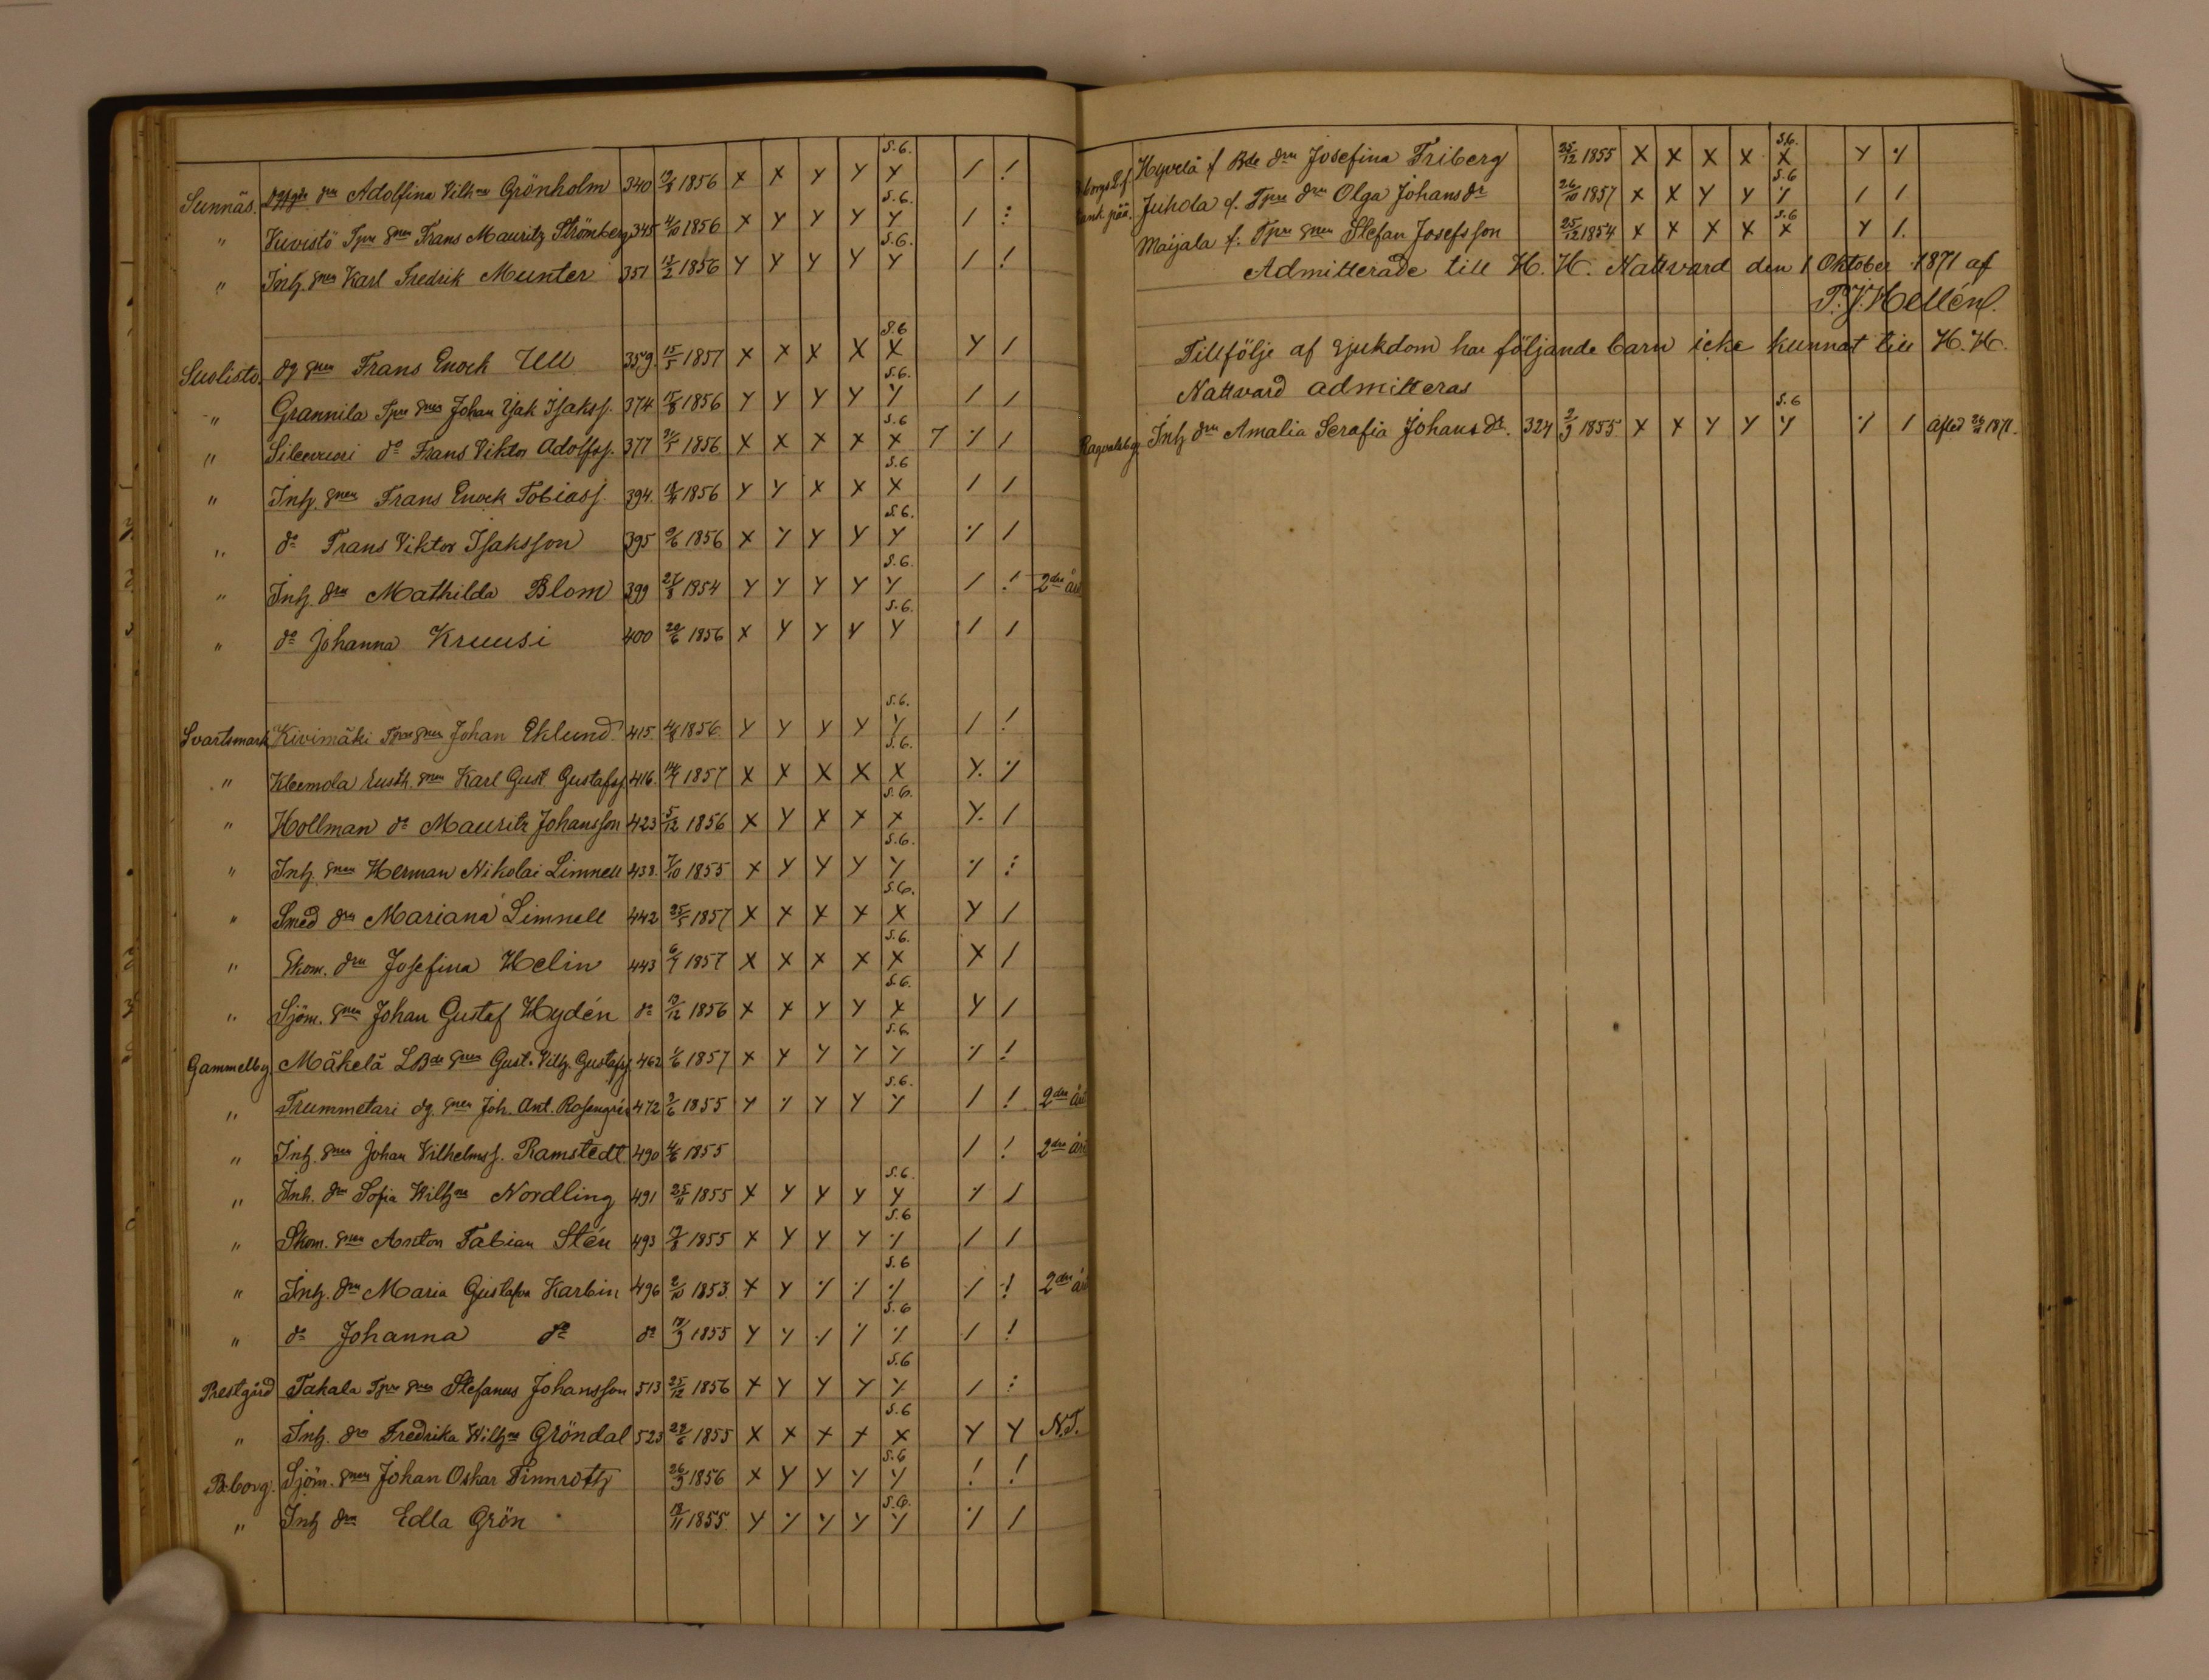 S.6.
Sunnäs. dn Adolfina Vilhna Grönholm 340 1856 X X Y Y Y / !
S.6.
" Kuvistö Tpr gnen Frans Mauritz Strömberg 345 4/10 1856 X Y Y Y Y / :
S.6.
" Inh. gnen Karl Fredrik Munter 351 12/2 1856 Y Y Y Y Y / !
S.6
Suolisto. dg gnen Frans Enoch Ull 359. 15/5 1857 X X X X X Y /
S.6.
" Grannila Tpr gnen Johan Isak Isakss. 374 1856 Y Y Y Y Y / /
S.6
" do Frans Viktor Adolfss. 377 1856 X X X X X 7 ·/· /
S.6
" Inh. gnen Frans Enock Tobiass. 394. 1856 Y Y X X X / /
S.6.
" do Frans Viktor Isaksson 395 9/6 1856 X Y Y Y Y ·/· /
S.6.
" Inh. drn Mathilda Blom 399 27/8 1854 Y Y Y Y Y / ! 2dra år
S.6.
" do Johanna Kruusi 400 20/6 1856 X Y Y Y Y / /
S.6.
Svartsmark Kivimäki Tpr gnen Johan Eklund 415. 4/8 1856. Y Y Y Y Y / !
S.6.
" Kleemola Rusth. gnen Karl Gust Gustafss. 416. 1857 X X X X X Y. ·/·
S.6.
" Hollman do Mauritz Johansson 423 5/12 1856 X Y X X X Y. /
S.6.
" Inh. gnen Herman Nikolai Limnell 438. 7/10 1855 X Y Y Y Y ·/· :
S.6.
" Smed drn Mariana Limnell 442 25/5 1857 X X X X X Y /
S.6.
" Skom. drn Josefina Helin 443 6/7 1857 X X X X X X /
S.6.
" Sjöm. gnen Johan Gustaf Hydén do 12/12 1856 X X Y Y X Y /
S.6.
Gammelby Mäkelä LBde gnen Gust. Vilh. Gustafss. 462 1/6 1857 X Y Y Y Y ·/· !
S.6.
" Trummetari dg. gnen Joh. Ant. Rosengrén 472 2/6 1855 Y ·/· Y Y Y / ! 2dra år
" Inh. gnen Johan Vilhelmss. Ramstedt 490 4/6 1855 / ! 2dra år
S.6.
" Inh. drn Sofia Wilhna Nordling 491 25/11 1855 X Y Y Y Y ·/· /
S.6
" Skom. gnen Anton Fabian Stén 493 1855 X Y Y Y ·/· / /
S.6
" Inh. drn Maria Gustafva Karbin 496 2/10 1853. X Y ·/· ·/· ·/· / ! 2dra år
S.6
" do Johanna do do 1855 Y ·/· ·/· ·/· ·/· / !
S.6
Prestgård Takala Tpr gnen Stefanus Johansson 513 25/12 1856 X Y Y Y Y / :
S.6
" Inh. drn Fredrika Wilhna Gröndal 523 28/6 1855 X X X X X Y Y N.T.
S.6
B:borg. Sjöm. gnen Johan Oskar Finnroth 26/9 1856 X Y Y Y Y ! !
S.6.
" Inh drn Edla Grön 18/11 1855. Y ·/· Y Y Y ·/· /
S.6.
Hyvelä f Bde drn Josefina Friberg 25/12 1855 X X X X X Y ·/·
S.6
Juhola f. Tprs drn Olga Johansdr 26/10 1857 X X Y Y ·/· / /
S.6
Maijala f. Tprs gnen Stefan Josefsson 25/12 1854 X X X X X Y /.
Admitterade till H. H. Nattvard den 1 Oktober 1871 af
Hellén.
Tillfölje af Sjukdom har följande barn icke kunnat till H. H.
Nattvard admitteras
S.6
Ragvaldsby Inh drn Amalia Serafia Johansdr. 324 2/9 1855 X X Y Y Y ·/· / 1871.